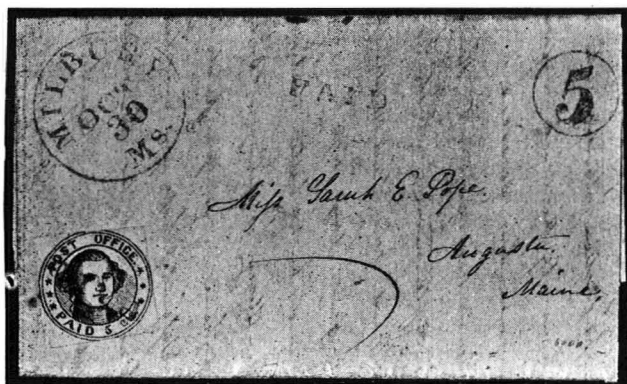 MILBURY
OCT
30
MS.
PAID
5
Miss Sarah E. Pope
Augusta,
Maine,
POST OFFICE.
PAID 5 Cts.